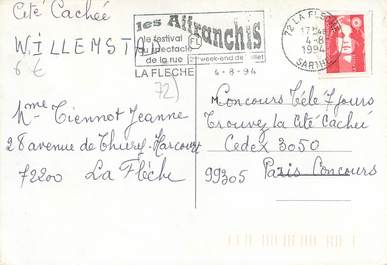 Cité Cachée
WILLEMSTAD
6 €
les Affranchis
le festival
du spectacle
de la rue
2ème week-end de juillet
LA FLECHE
4-8-94
72 LA FLECHE
17H
4-8
1994
SARTHE
72)
Mme Tiennot Jeanne
28 avenue de Thury-Harcourt
72200 La Flèche
M Concours Télé 7 jours
Trouvez la Cité Cachée
Cedex 3050
99305 Paris Concours